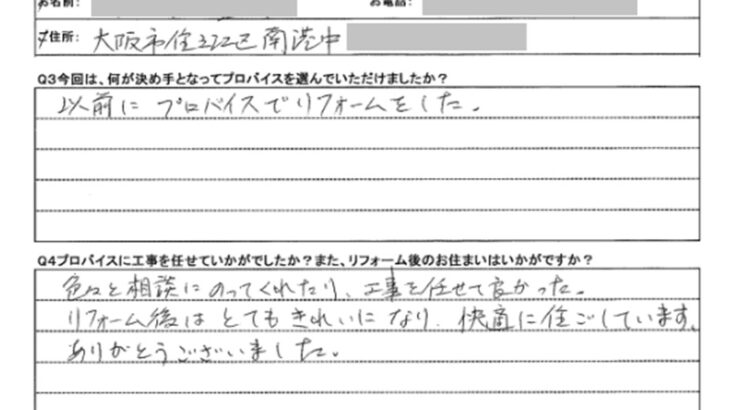 お名前: お電話:
ご住所: 大阪市住之江区南港中
Q3今回は、何が決め手となってプロバイスを選んでいただけましたか?
以前にプロバイスでリフォームをした。
Q4プロバイスに工事を任せていかがでしたか?また、リフォーム後のお住まいはいかがですか?
色々と相談にのってくれたり、工事を任せて良かった。
リフォーム後はとてもきれいになり、快適に住ごしています。
ありがとうございました。